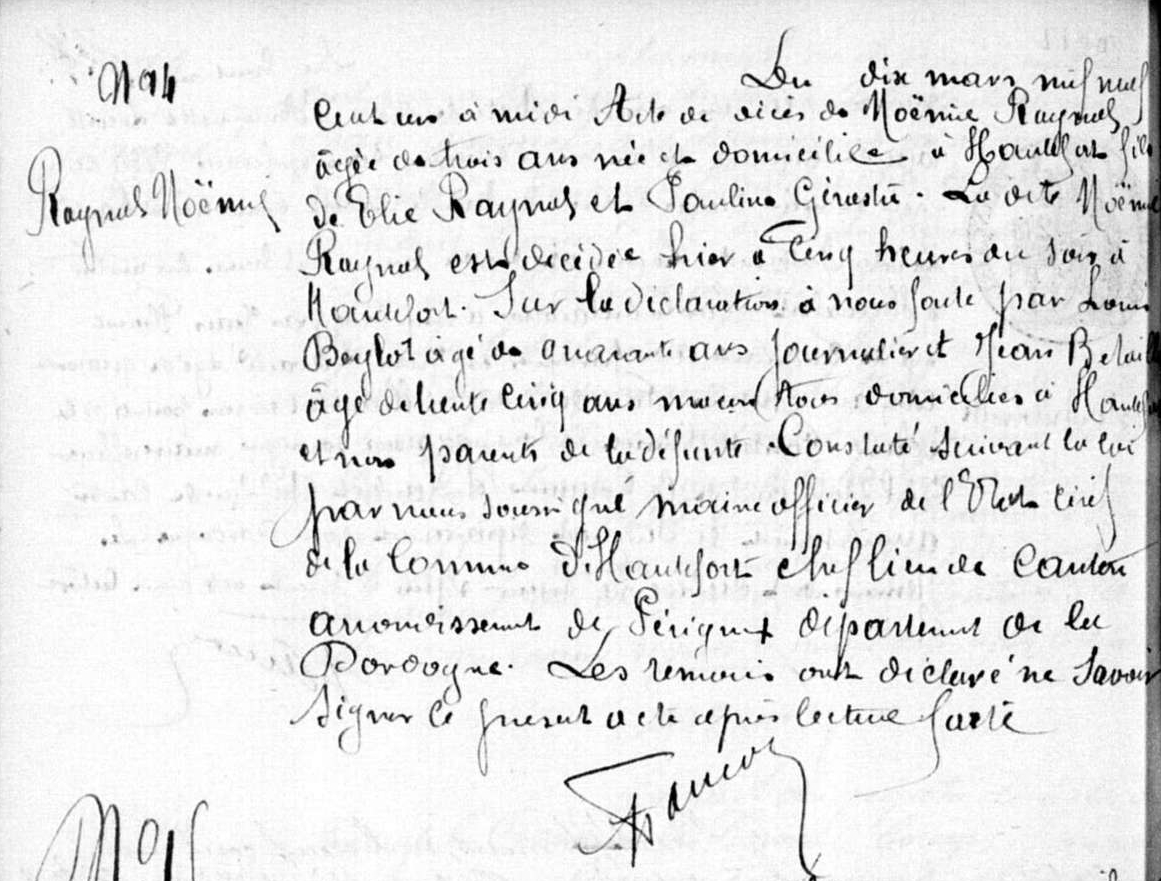 N° 14
Raynal Noëmie
Du dix mars mil neuf
Cent un à midi Acte de décès de Noëmie Raynal
âgée de trois ans née et domiciliée à Hautefort fille
de Elie Raynal et Pauline Gérestie. La dite Noëmie
Raynal est décédée hier à Cinq heures du soir à
Hautefort. Sur la déclaration à nous faite par Louis
Beylot âgé de quarante ans journalier et Jean
âgé de trente cinq ans domiciliés à Hautefort
et non parents de la défunte. Constaté suivant la loi
par nous soussigné maire officier de l'Etat civil
de la Commune d'Hautefort chef lieu de Canton
arrondissement de Périgueux département de la
Dordogne. Les témoins ont déclaré ne savoir
signer le présent acte après lecture faite
N° 15